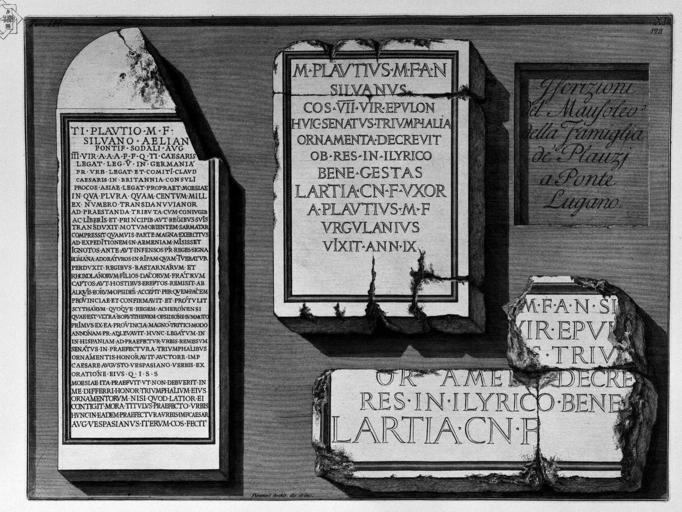 TI·PLAVTIO·M·F·
SILVANO·AELIAN
PONTIF·SODALI·AVG
III·VIR·A·A·A·F·F·Q·TI·CAESARIS
LEGAT·LEG·V·IN·GERMANIA
PR·VRB·LEGAT·ET·COMITI·CLAVD
CAESARIS·IN·BRITANNIA·CONSVLI
PROCOS·ASIAE·LEGAT·PROPRAET·MOESIAE
IN·QVA·PLVRA·QVAM·CENTVM·MILL
EX·NVMERO·TRANSDANVVIANOR
AD·PRAESTANDA·TRIBVTA·CVM·CONIVGIB
AC·LIBERIS·ET·PRINCIPIB·AVT·REGIBVS·SVIS
TRANSDVXIT·MOTVM·ORIENTEM·SARMATAR
COMPRESSIT·QVAMVIS·PARTE·MAGNA·EXERCITVS
AD·EXPEDITIONEM·IN·ARMENIAM·MISISSET
IGNOTOS·ANTE·AVT·INFENSOS·P·R·REGES·SIGNA
ROMANA·ADORATVROS·IN·RIPAM·QVAM·TVEBATVR
PERDVXIT·REGIBVS·BASTARNARVM·ET
RHOXOLANORVM·FILIOS·DACORVM·FRATRVM
CAPTOS·AVT·HOSTIBVS·EREPTOS·REMISIT·AB
ALIQVIS·EORVM·OPSIDES·ACCEPIT·PER·QVEM·PACEM
PROVINCIAE·ET·CONFIRMAVIT·ET·PROTVLIT
SCYTHARVM·QVOQVE·REGEM·ACHERONENSI
QVAE·EST·VLTRA·BORVSTHENEN·OPSIDIONE·SVMMOTO
PRIMVS·EX·EA·PROVINCIA·MAGNO·TRITICI·MODO
ANNONAM·P·R·ADLEVAVIT·HVNC·LEGATVM·IN
IN·HISPANIAM·AD·PRAEFECTVR·VRBIS·REMISSVM
SENATVS·IN·PRAEFECTVRA·TRIVMPHALIBVS
ORNAMENTIS·HONORAVIT·AVCTORE·IMP
CAESARE·AVGVSTO·VESPASIANO·VERBIS·EX
ORATIONE·EIVS·Q·I·S·S
MOESIAE·ITA·PRAEFVIT·VT·NON·DEBVERIT·IN
ME·DIFFERRI·HONOR·TRIVMPHALIVM·EIVS
ORNAMENTORVM·NISI·QVOD·LATIOR·EI
CONTIGIT·MORA·TITVLVS·PRAEFECTO·VRBIS
HVNC·IN·EADEM·PRAEFECTVRA·VRBIS·IMP·CAESAR
AVG·VESPASIANVS·ITERVM·COS·FECIT
M·PLAVTIVS·M·F·A·N
SILVANVS
COS·VII·VIR·EPVLON
HVIC·SENATVS·TRIVMPHALIA
ORNAMENTA·DECREVIT
OB·RES·IN·ILYRICO
BENE·GESTAS
LARTIA·CN·F·VXOR
A·PLAVTIVS·M·F
VRGVLANIVS
VIXIT·ANN·IX
Iscrizioni
del Mausoleo
della Famiglia
de Plauzj
a Ponte
Lugano.
M·F·A·N·SI
VIR·EPVL
S·TRIV
OR AMEN DECRE
RES·IN·ILYRICO·BENE
LARTIA·CN·F